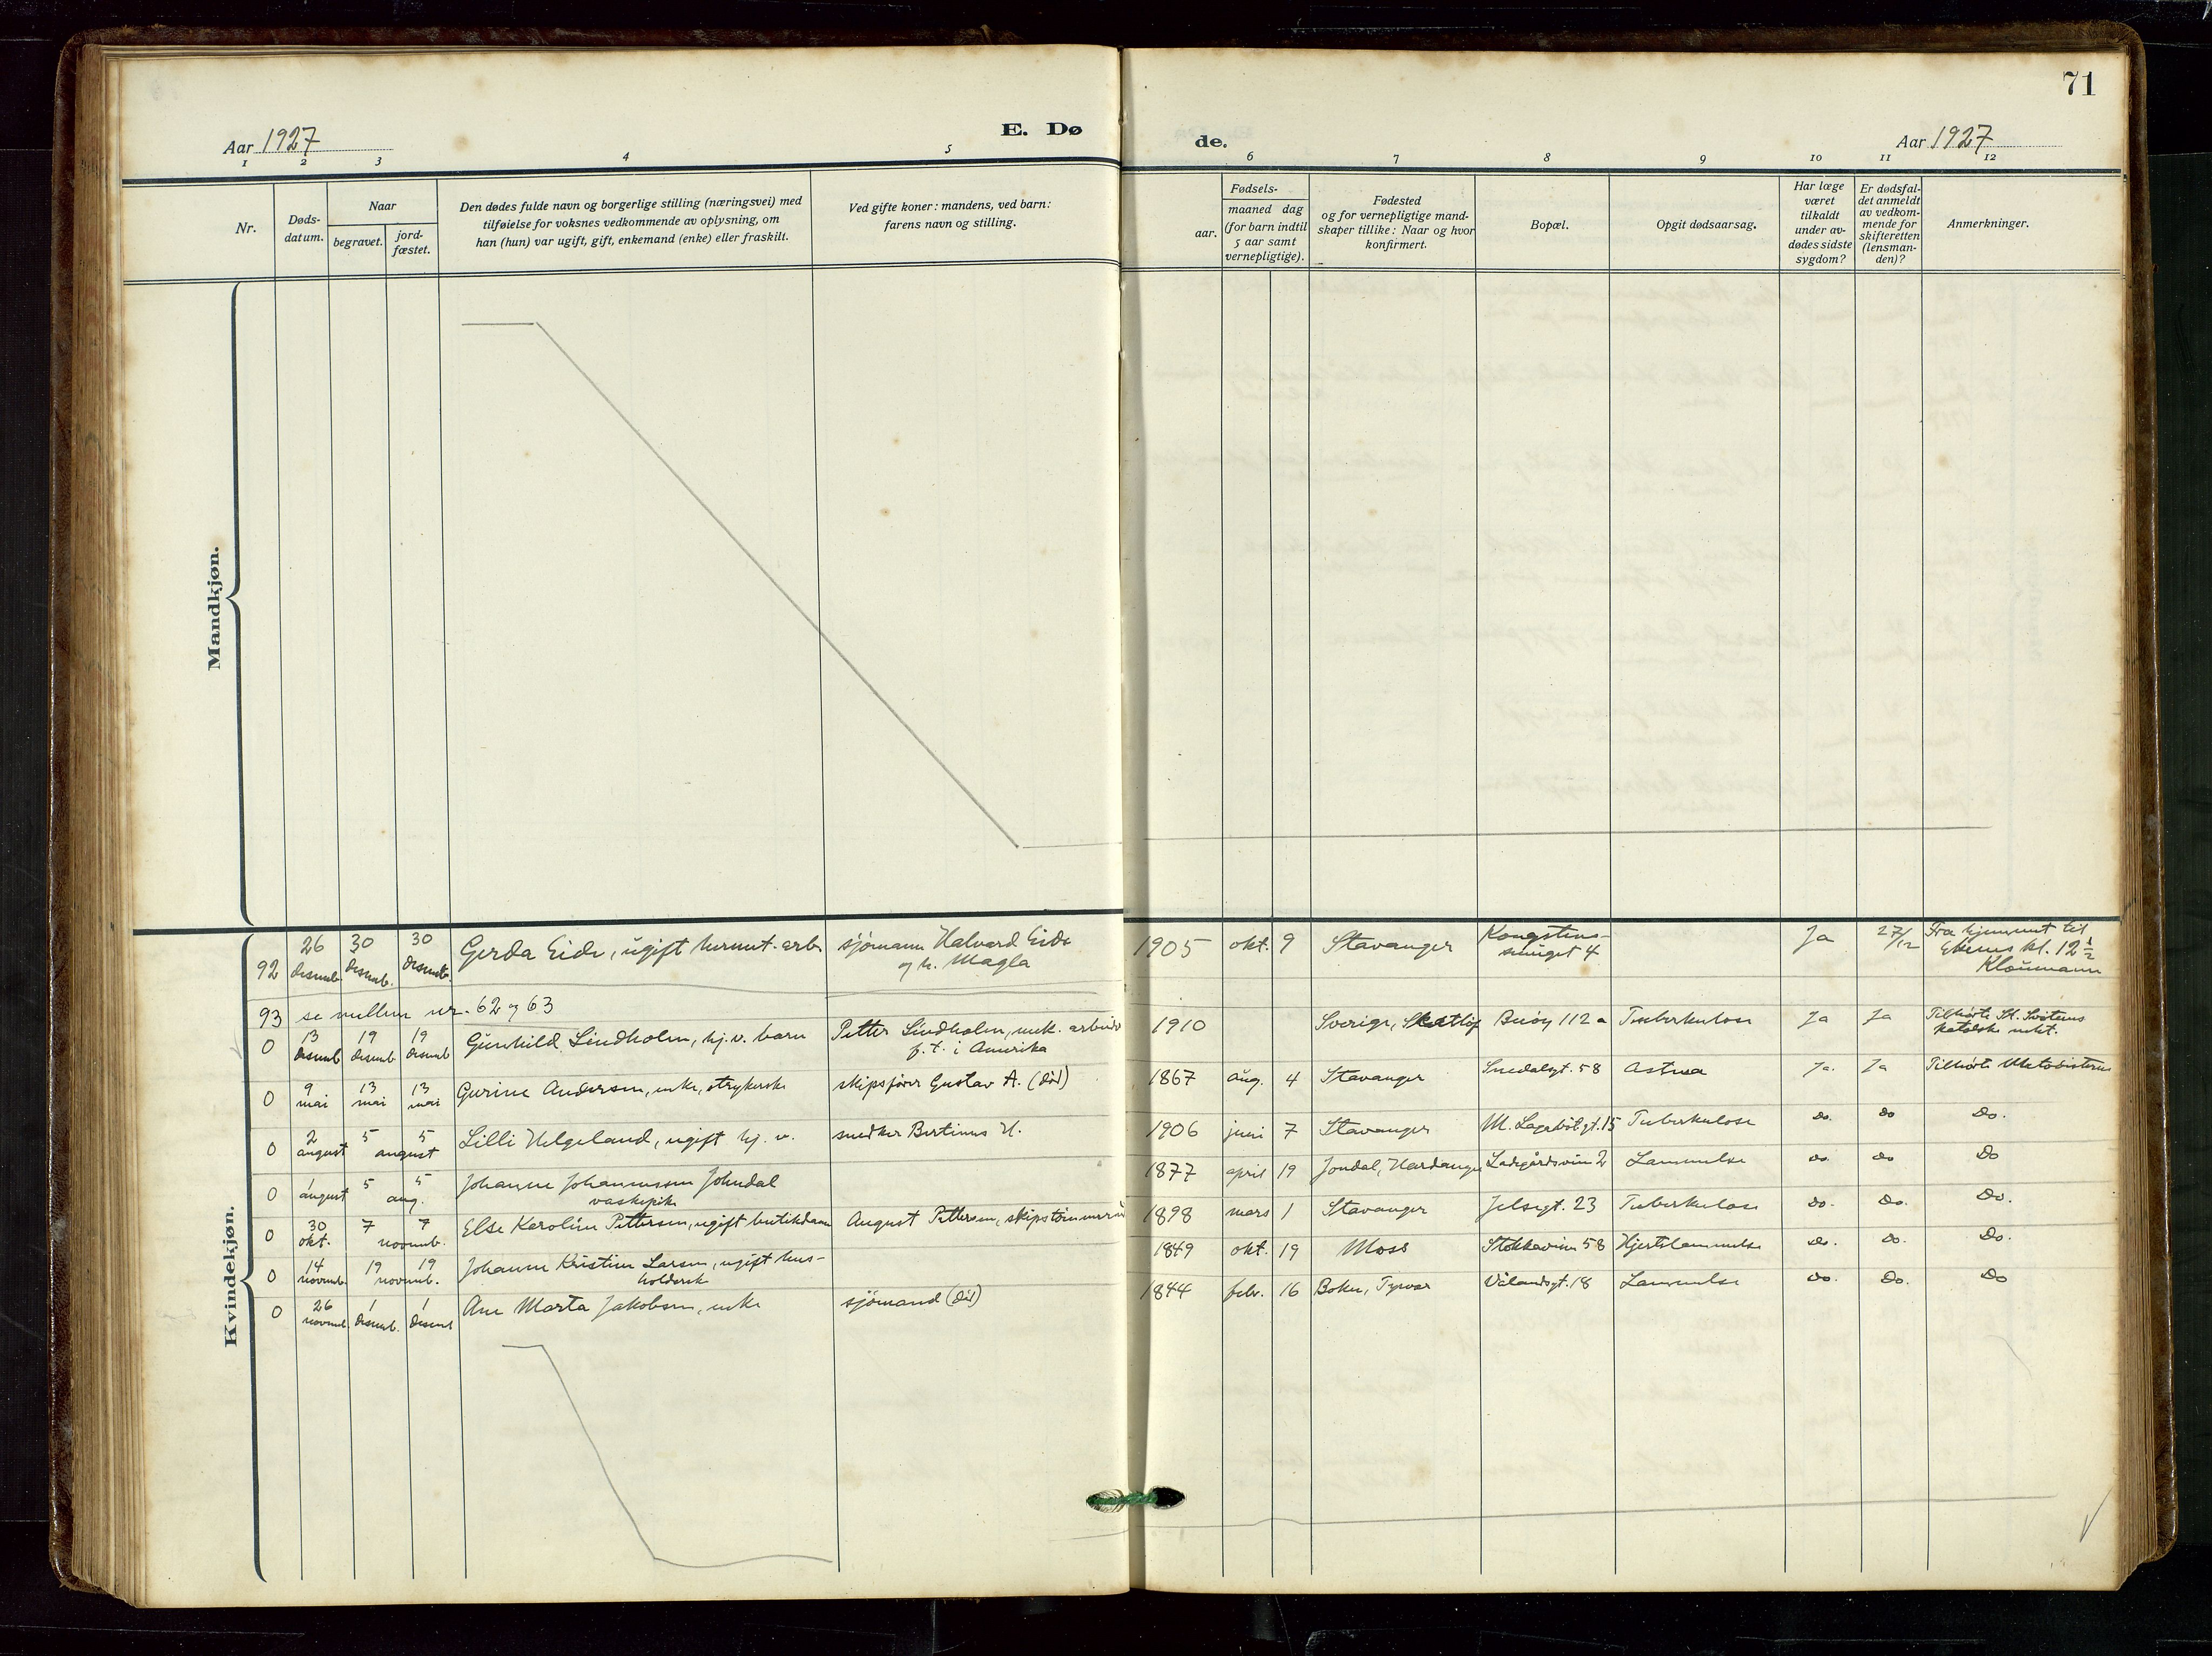 71
Aar 1927
E. Dø
de.
Aar 1927
1 2 3 4 5 6 7 8 9 10 11 12
Nr.
Døds-
datum.
Naar
begravet.
jord-
fæstet.
Den dødes fulde navn og borgerlige stilling (næringsvei) med
tilføielse for voksnes vedkommende av oplysning, om
han (hun) var ugift, gift, enkemand (enke) eller fraskilt.
Ved gifte koner: mandens, ved barn:
farens navn og stilling.
Fødsels-
aar.
maaned dag
(for barn indtil
5 aar samt
vernepligtige).
Fødested
og for vernepligtige mand-
skaper tillike: Naar og hvor
konfirmert.
Bopæl.
Opgit dødsaarsag.
Har læge
været
tilkaldt
under av-
dødes sidste
sygdom?
Er dødsfal-
det anmeldt
av vedkom-
mende for
skifteretten
(lensman-
den)?
Anmerkninger.
Mandkjøn.
Kvindekjøn.
92 26 desemb. 30 desemb. 30 desemb. Gerda Eide, ugift hermet. arb. sjömann Halvard Eide
og h. Magla
1905 okt. 9 Stavanger Kongstens-
smuget 4 Ja 27/12 Fra hjemmet til
kl. 12 1/2
93 se mellem nr. 62 og 63
0 13 desemb 19 desemb 19 desemb Gunhild Lindholm, hj. v. barn Petter Lindholm, mek. arbeider
f. t. i Amerika
1910 Sverige, Buöy 112 a Tuberkulose Ja Ja Tilhörte St. Svitens
katolske mkt.
0 9 mai 13 mai 13 mai Gurine Andersen, enke, strykerske skipsförer Gustav A. (död)
1867 aug. 4 Stavanger Suedalsgt. 58 Astma Ja. Ja Tilhörte Metodisterne
0 2 august 5 5 august Lilli Helgeland, ugift hj. v. snedker Bertinus H.
1906 juni 7 Stavanger M. Lagabötgt. 15 Tuberkulose do. do Do.
0 1 august 5 5 aug. Johanne Johannessen Johndal
vaskepike
1877 april 19 Jondal, Hardanger Ladegårdsveien 2 Lammelse do. do Do
0 30 okt. 7 7 novemb. Else Karoline Pettersen, ugift butikdame August Pettersen, skipstömmermann
1898 mars 1 Stavanger Jelsagt. 23 Tuberkulose do. Do. Do.
0 14 novemb. 19 19 novemb. Johanne Kristine Larsen, ugift hus-
holdersk
1849 okt. 19 Moss Stokkaveien 58 Hjertelammelse do. do. Do.
0 26 novemb 1 desemb. 1 desemb Ane Marta Jakobsen, enke sjömand (död)
1844 febr. 16 Boken, Tysvær Vålandsgt. 18 Lammelse do. Do. Do